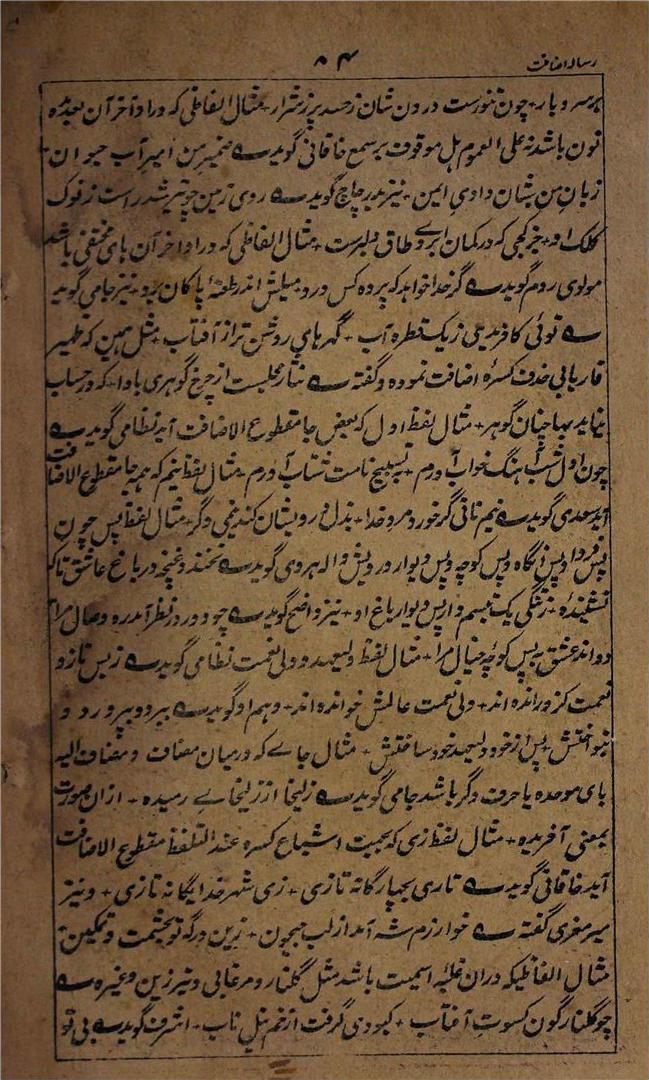 رساله اضافت
۵۴
بوسه و بار چون تنورست درون شان زحسد پر ز شرار مثال الفاظی که در اواخر آن بعد مده
نون باشد نه علی العموم بل موقوف بر سمع خاقانی گوید ضمیر من امیر آب حیوان
زبان من شبان وادی ایمن نیز بدر چاچ گوید روی زمین چو تیر شد راست ز نوک
کلک او جز کجی که در کمان ابروی طاق دلبرست مثال الفاظی که در اواخر آن های مختفی باشد
مولوی روم گوید گر خدا خواهد که پرده کس درد میلش اندر طعنه پاکان برد نیز جامی گوید
توئی کافریدی ز یک قطره آب گهرهای روشن تر از آفتاب مثل همین که ظهیر
فاریابی حذف کسره اضافت نموده و گفته نثار مجلست از چرخ گوهری بادا که در حساب
نیاید بها چنان گوهر مثال لفظ اول که بعض جا مقطوع الاضافت آید نظامی گوید
چون اول شب آهنگ خواب آورم به تسبیح نامت شتاب آورم مثال لفظ نیم که همه جا مقطوع الاضافت
آید سعدی گوید نیم نانی گر خورد مرد خدا بذل درویشان کند نیمی دگر مثال لفظ پس چون
پس فردا و پس نگاه و پس کوچه و پس دیوار درویش واله هروی گوید نخندد غنچه در باغ عاشق تا که
ننشیند ز تنگی یک تبسم وار پس دیوار باغ او نیز واضح گوید چو دور در نظر آمد ره وصال مرا
دواند عشق به پس کوچه خیال مرا مثال لفظ ولیعهد و ولی نعمت نظامی گوید ز بس نازو
نعمت کزو رانده اند ولی نعمت عالمش خوانده اند و هم او گوید بپرورد و
بنواختش پس از خود ولیعهد خود ساختش مثال جائے که درمیان مضاف و مضاف الیه
بای موحده یا حرف دگر باشد جامی گوید زلیخا از زلیخائی رمیده ازان صورت
بمعنی آرمیده مثال لفظ زی که بجهت اشباع کسره عند التلفظ مقطوع الاضافت
آید خاقانی گوید تازی بچهار گانه تازی زی شهر خدا یگانه تازی و نیز
میر معزی گفته خوارزم شه آمد از لب جیحون زین درگه تو بحشمت و تمکین
مثال الفاظیکه دران غلبه اسمیت باشد مثل گلنار و مرغابی و نیز زین و غیره
چو گلنار گون کسوت آفتاب کبودی گرفت از خم نیل ناب اشرف گوید بی تو